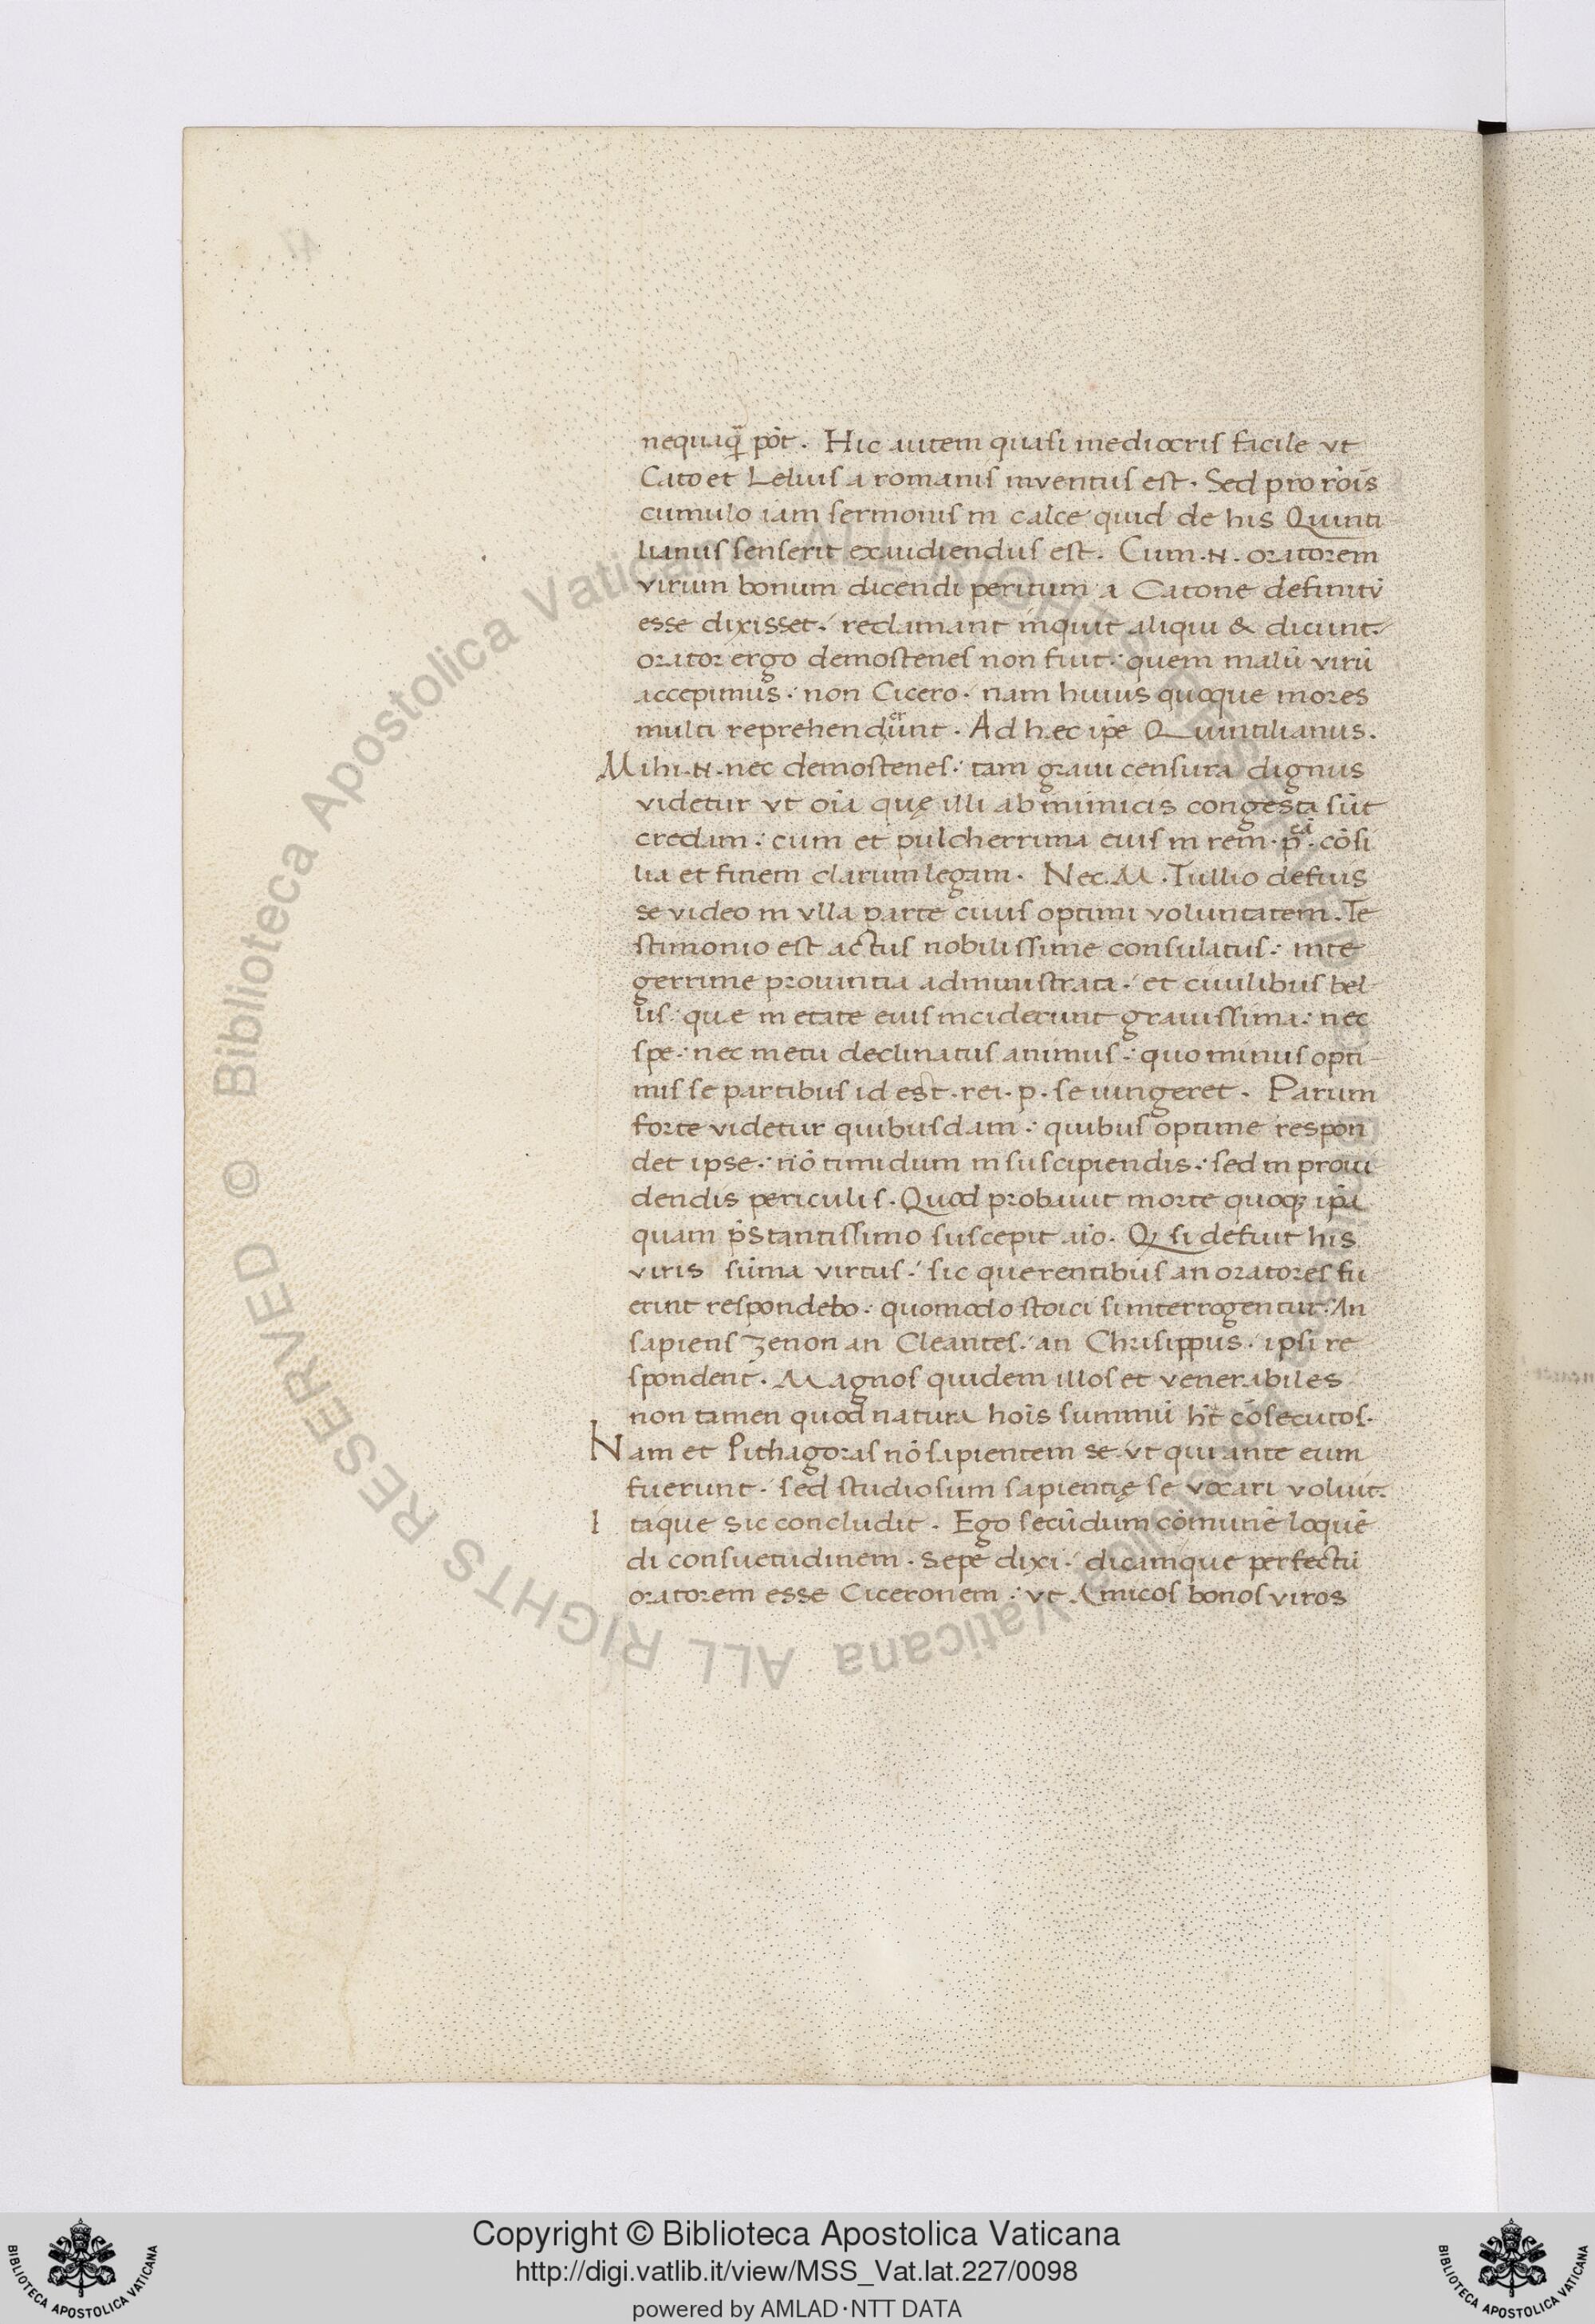 nequaq̄ pōt. Hic autem quasi mediocris facile vt
Cato et Lelius a romanis inventus est. Sed pro rōis
cumulo iam sermonis in calce quid de his Quinti
lianus senserit exaudiendus est. Cum .n. oratorem
virum bonum dicendi peritum a Catone definitū
esse dixisset: reclamant inquit aliqui & dicunt:
orator ergo demostenes non fuit: quem malū virū
accepimus: non Cicero. nam huius quoque mores
multi reprehenderūnt. Ad hec ipe Quintilianus.
Mihi .n. nec demostenes: tam graui censura dignus
videtur vt oīa quę illi ab inimicis congesta sūt
credam: cum et pulcherrima eius in rem .p.cā cōsi
lia et finem clarum legam. Nec .M. Tullio defuis
se video in vlla parte ciuis optimi voluntatem. Te
stimonio est actus nobilissime consulatus: inte
gerrime prouintia administrata: et ciuilibus bel
lis: que in etate eius inciderunt grauissima: nec
spe: nec metu declinatus animus: quo minus opti
mis se partibus id est .rei .p. se iungeret. Parum
forte videtur quibusdam: quibus optime respon
det ipse: nō timidum in suscipiendis: sed in proui
dendis periculis. Quod probauit morte quoqȝ ipa
quam p̄stantissimo suscepit aīo. Qȝ si defuit his
viris sūma virtus: sic querentibus an oratores fu
erint respondebo: quomodo stoici si interrogentur: An
sapiens zenon an Cleantes: an Chrisippus: ipsi re
spondent. Magnos quidem illos et venerabiles
non tamen quod natura hoīs summū ht̄ cōsecutos.
Nam et Pithagoras nō sapientem se vt qui ante eum
fuerunt: sed studiosum sapientię se vocari voluit.
Itaque sic concludit. Ego secūdum cōmunē loquē
di consuetudinem. sepe dixi: dicamque perfectū
oratorem esse Ciceronem: vt Amicos bonos viros
© Biblioteca Apostolica Vaticana ALL RIGHTS RESERVED
Copyright © Biblioteca Apostolica Vaticana
http://digi.vatlib.it/view/MSS_Vat.lat.227/0098
powered by AMLAD·NTT DATA
BIBLIOTECA APOSTOLICA VATICANA
BIBLIOTECA APOSTOLICA VATICANA